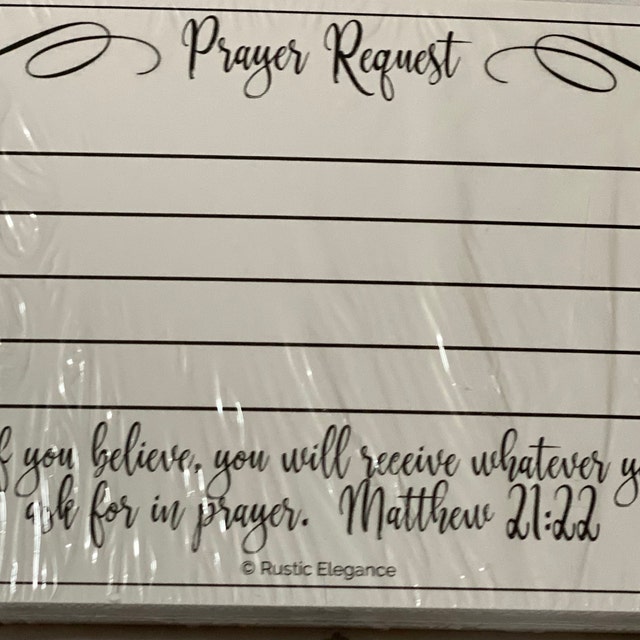 Prayer Request
f you believe, you will receive whatever y
ask for in prayer. Matthew 21:22
© Rustic Elegance